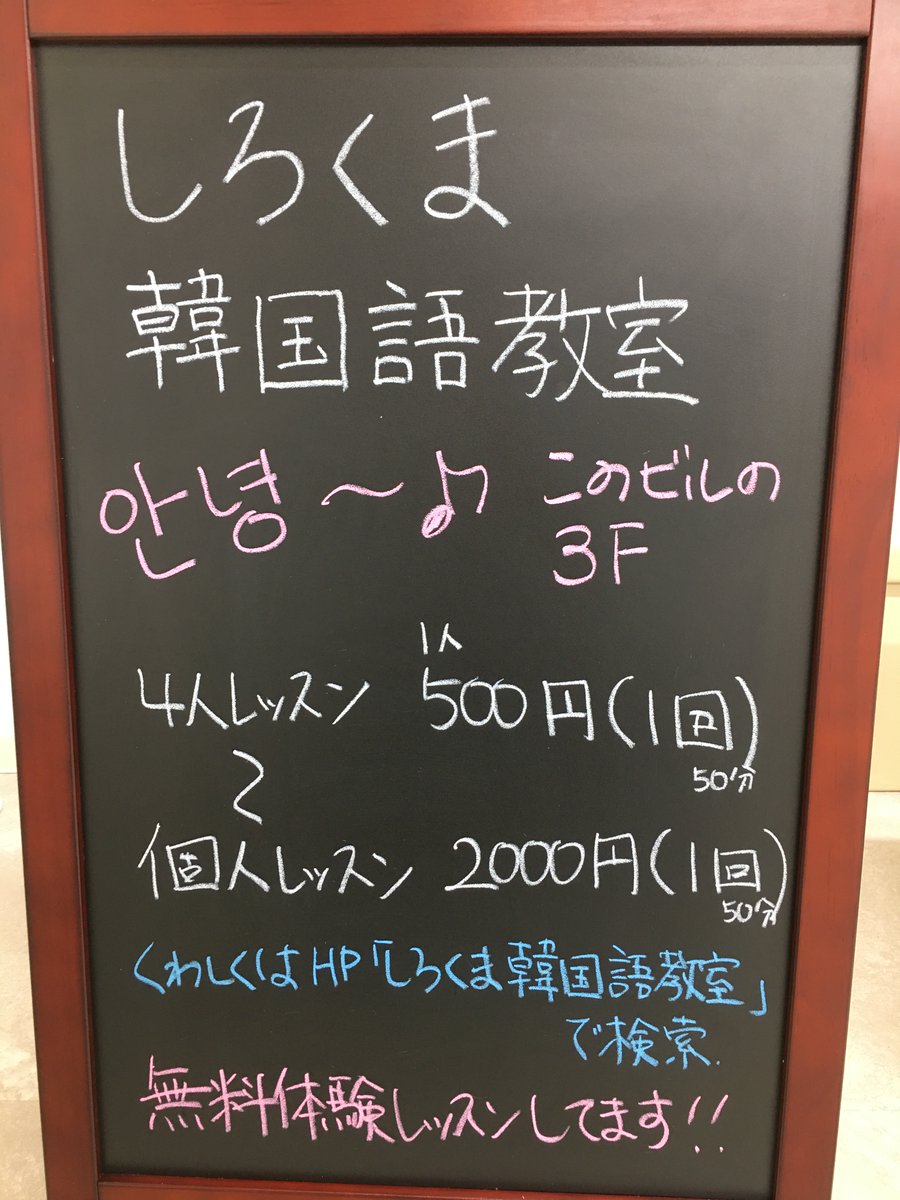 しろくま
韓国語教室
안녕～♪ このビルの
3F
1人
4人レッスン 500円(1回)
50分
〜
個人レッスン 2000円(1回)
50分
くわしくはHP「しろくま韓国語教室」
で検索.
無料体験レッスンしてます!!